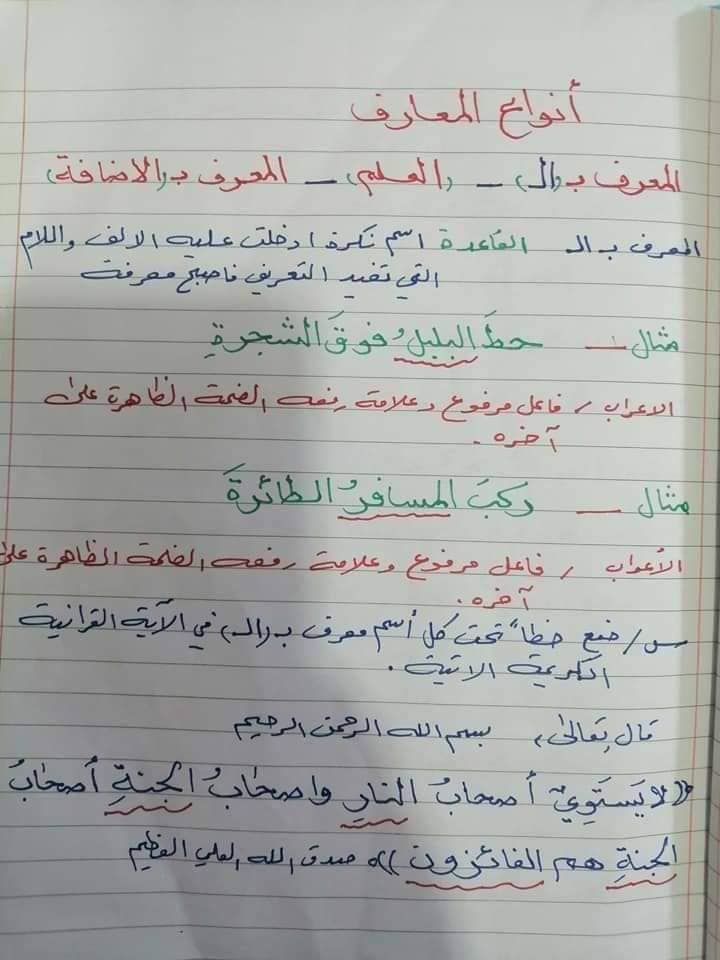 أنواع المعارف
المعرف ب(ال) - (العلم) - المعرف ب(الاضافة)
المعرف ب ال القاعدة اسم نكرة ادخلت عليه الالف واللام
التي تفيد التعريف فاصبح معرفة
مثال - حطَ البلبلُ فوقَ الشجرةِ
الاعراب / فاعل مرفوع وعلامة رفعه الضمة الظاهرة على
آخره .
مثال - ركبَ المسافرُ الطائرةَ
الأعراب / فاعل مرفوع وعلامة رفعه الضمة الظاهرة على
آخره .
س/ ضع خطاً تحت كل أسم معرف ب(ال) في الآية القرانية
الكريمة الاتية .
قال تعالى، بسم الله الرحمن الرحيم
((لا يَستَوِيْ أصحابُ النارِ واصحابُ الجنةِ أصحابُ
الجنةِ هم الفائزون)) صدق الله العلي العظيم